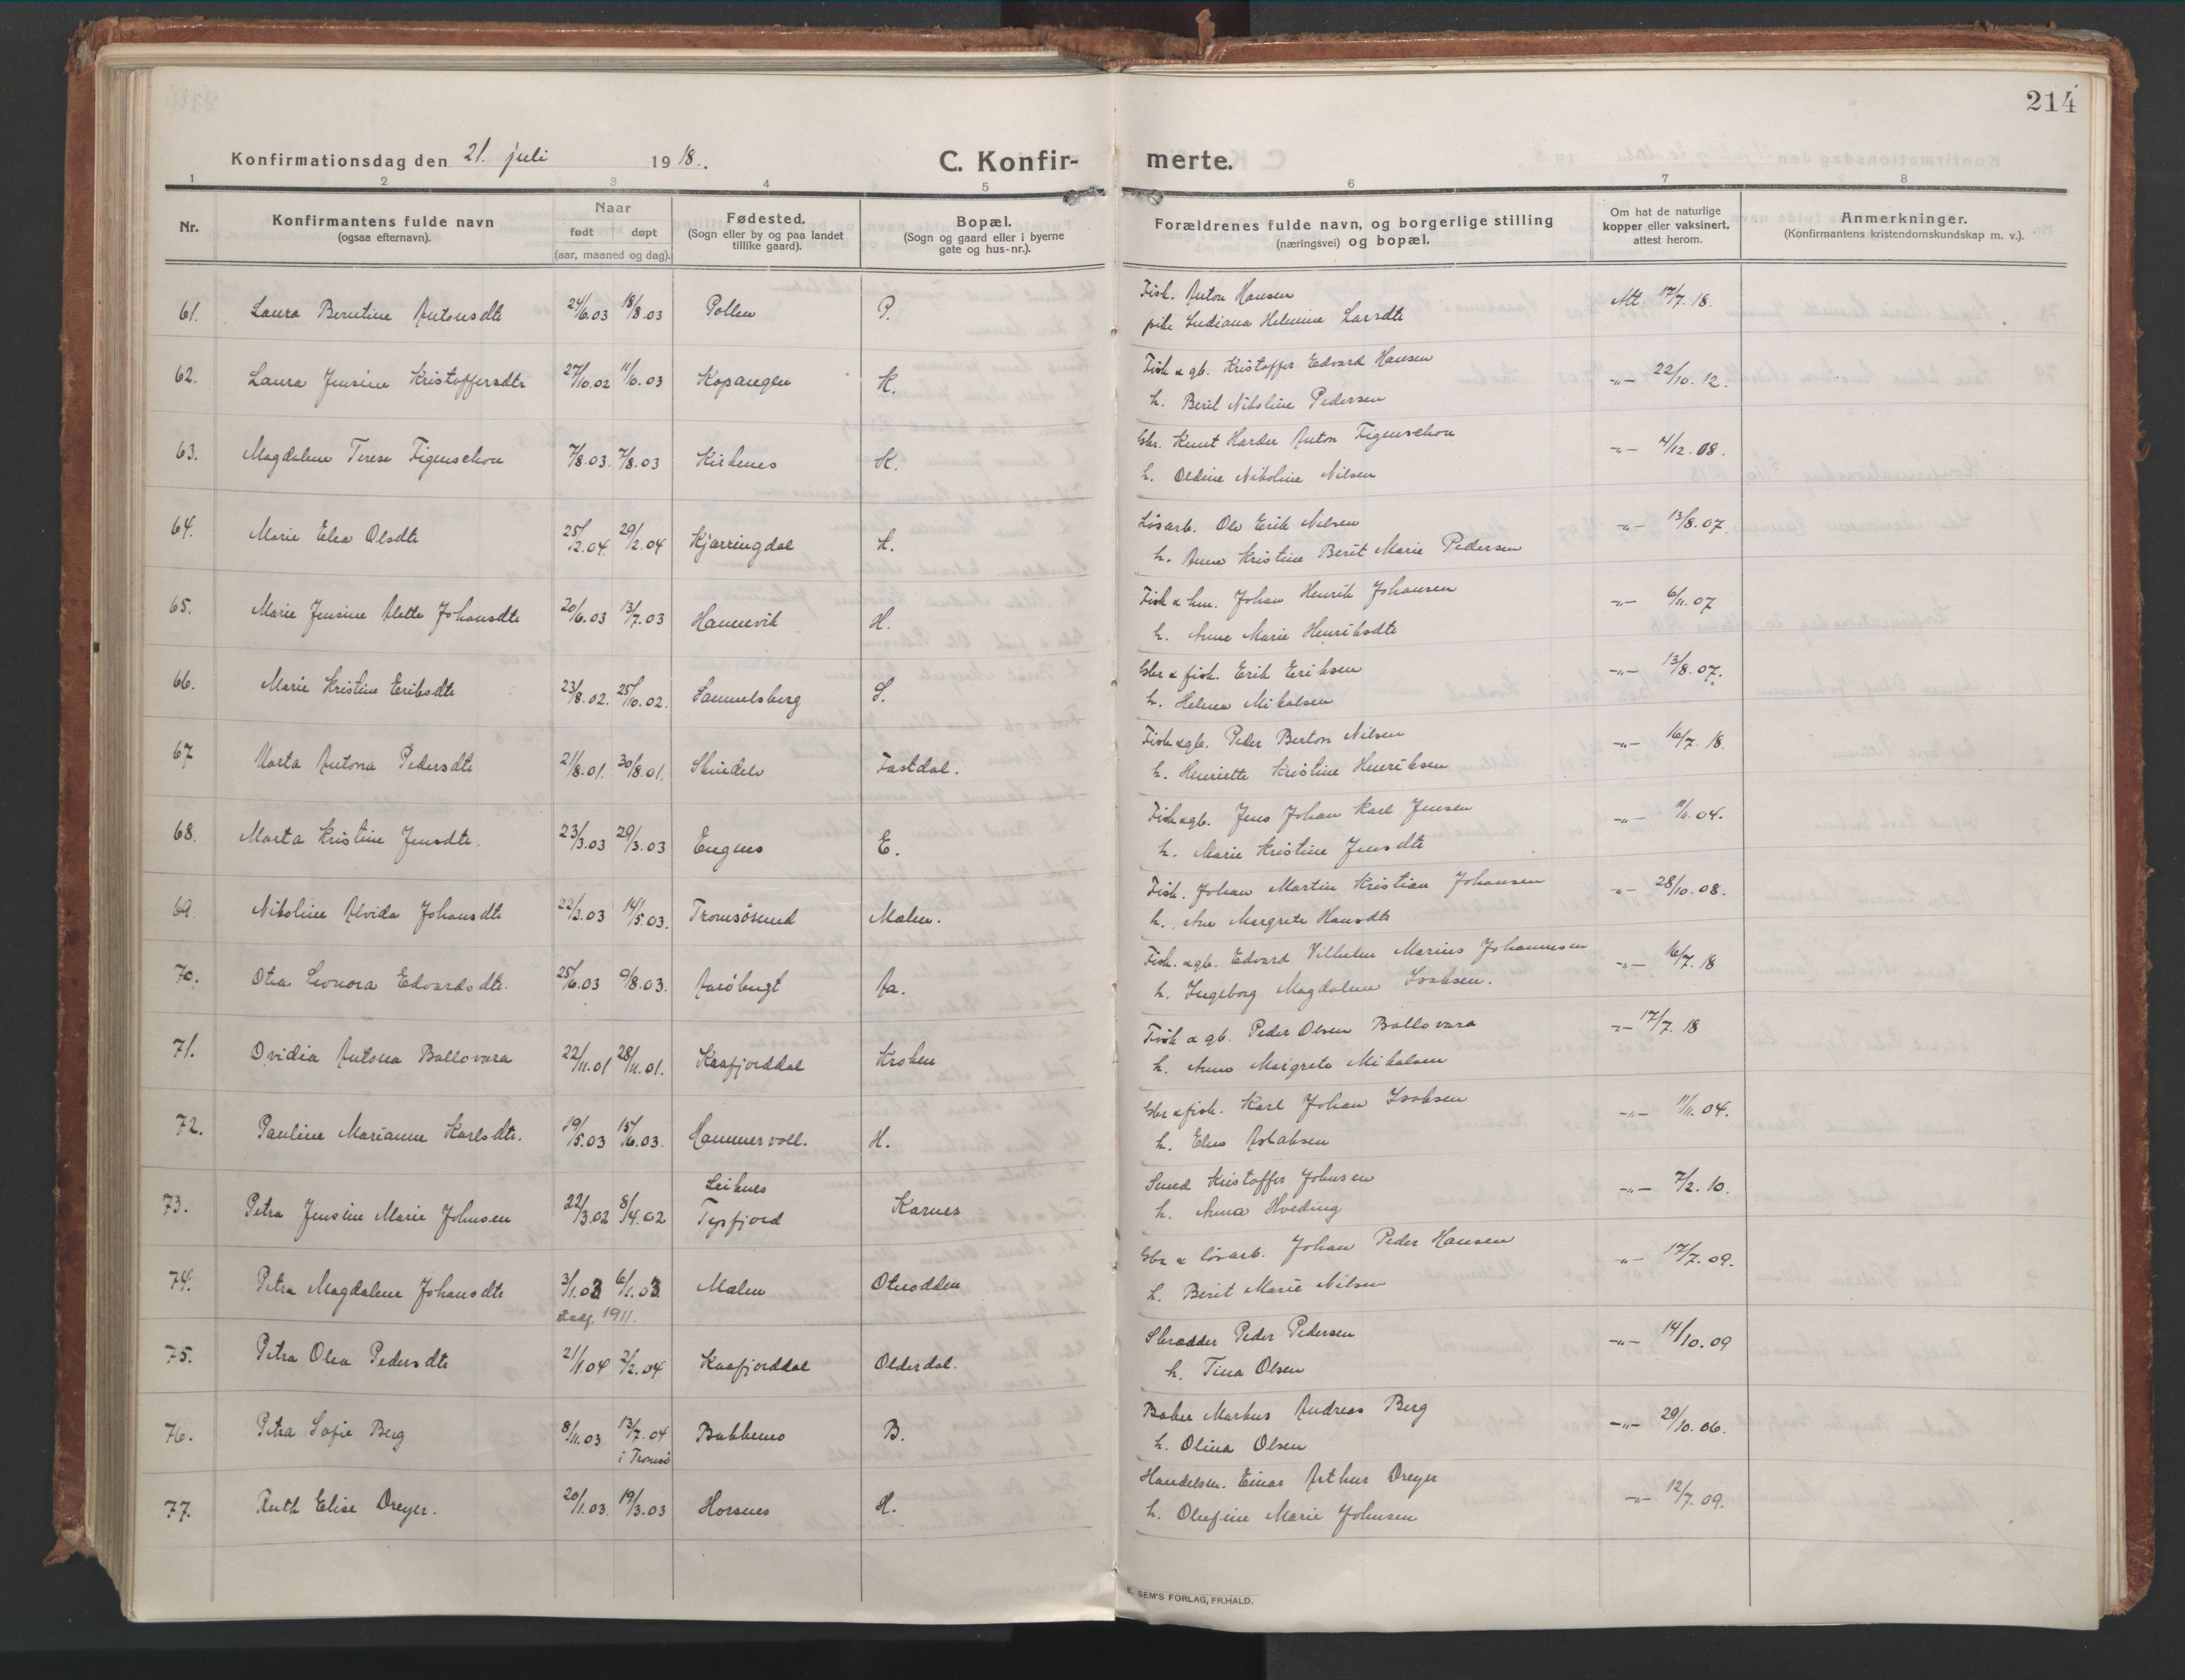 214
Konfirmationsdag den 21. juli 1918.
C. Konfirmerte.
1 2 3 4 5 6 7 8
Nr.
Konfirmantens fulde navn
(ogsaa efternavn).
Naar
født døpt
(aar, maaned og dag).
Fødested.
(Sogn eller by og paa landet
tillike gaard).
Bopæl.
(Sogn og gaard eller i byerne
gate og hus-nr.).
Forældrenes fulde navn, og borgerlige stilling
(næringsvei) og bopæl.
Om hat de naturlige
kopper eller vaksinert,
attest herom.
Anmerkninger.
(Konfirmantens kristendomskundskap m. v.).
61. Laura Berntine Antonsdtr 24/6.03 18/8.03 Pollen P. Fisk. Anton Hansen Att. 17/7.18.
pike Indiana Helmine Larsdtr
62. Laura Jensine Kristoffersdtr 27/10.02 11/6.03 Kopangen K. Fisk & gb. Kristoffer Edvard Hansen -"- 22/10.12.
h. Beril Nikoline Pedersen
63. Magdalene Terese Figenschou 7/8.03. 7/8.03 Kirknes K. Gbr. Knut Harder Anton Figenschou -"- 4/12.08.
h. Oldine Nikoline Nilsen
64. Marie Elea Olsdtr 25/2.04. 29/2.04 Kjærringdal K. Løsarb. Ole Erik Nilsen -"- 13/8.07.
h. Anne Kristine Berit Marie Pedersen
65. Marie Jensine Alette Johansdtr 20/6.03 13/7.03 Hannevik H. Fisk & hm. Johan Henrik Johansen -"- 6/11.07
h. Anne Marie Henriksdtr
66. Marie Kristine Eriksdtr 23/8.02. 25/10.02. Samuelsberg S. Gbr & fisk. Erik Eriksen -"- 13/8.07.
h. Helena Mikalsen
67 Marta Antona Pedersdtr 21/8.01. 30/8.01. Skindelv Fastdal. Fisk & gb. Peder Berton Nilsen -"- 16/7.18.
h. Henriette Kristine Henriksen
68. Marta Kristine Jensdtr. 23/3.03 29/3.03 Engnes E. Fisk & gb. Jens Johan Karl Jensen -"- 11/11.04.
h. Marie Kristine Jensdtr
69. Nikoline Alvida Johansdtr 22/3.03 14/5.03. Tromsøsund Malen. Fisk. Johan Martin Kristian Johansen -"- 28/10.08.
h. Ane Margrete Hansdtr
70. Otea Leonora Edvardsdtr. 25/6.03 9/8.03. Aarøbugt Aa. Fisk. & gb. Edvard Vilhelm Marius Johannesen -"- 16/7.18
h. Ingeborg Magdalene Isaksen.
71. Ovidia Antona Ballovara 22/11.01 28/11.01. Kaafjorddal Kroken Fisk & gb. Peder Olsen Ballovara -"- 17/7.18
h. Anne Margrete Mikalsen
72. Pauline Marianne Karlsdtr. 19/5.03 15/6.03. Hammervoll. H. Gbr & fisk. Karl Johan Isaksen -"- 11/11.04.
h. Elen Aslaksen
73. Petra Jensine Marie Johnsen 22/3.02 8/4.02 Leiknes
Typfjord Karnes Smed Kristoffer Johnsen -"- 7/2.10.
h. Anna Hveding
74. Petra Magdalene Johansdtr 3/1.03 6/1.03 Malen Oterodden Gbr & løsarb. Johan Peder Hansen -"- 17/7.09.
1911. h. Berit Marie Nilsen
75. Petra Olea Pedersdtr 21/1.04 2/2.04 Kaafjorddal Olderdal. Skrædder Peder Pedersen -"- 14/10.09
h. Tina Olsen
76. Petra Sofie Berg 8/11.03 13/7.04 Bakkemo B. Baker Markus Andreas Berg -"- 29/10.06.
i Tromsø h. Olina Olsen
77. Ruth Elise Dreyer. 20/1.03. 19/3.03 Horsnes H. Handelsm. Einar Arthur Dreyer -"- 12/7.09.
h. Olufine Marie Johnsen
E. SEM'S FORLAG, FR.HALD.